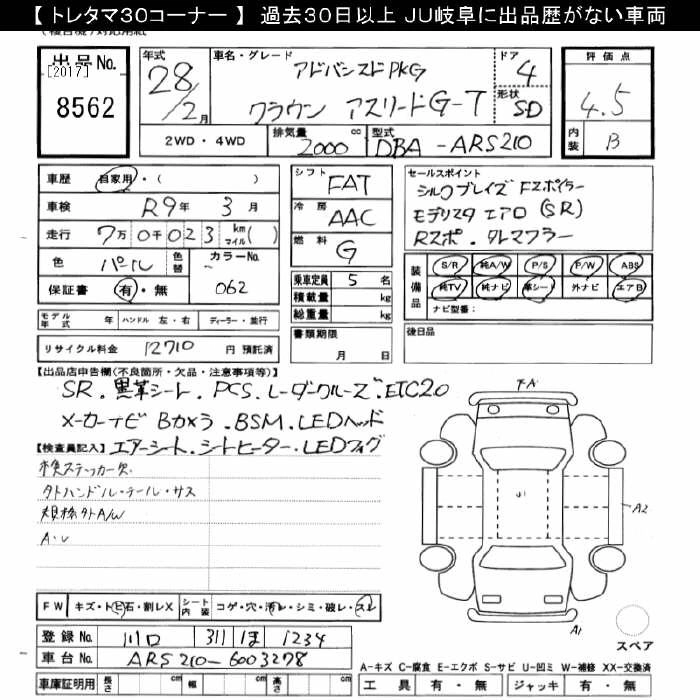 【 トレタマ30コーナー 】 過去30日以上 JU岐阜に出品歴がない車両
出品No.
[2017]
8562
年式
28/2月
車名・グレード
アドバンスドPKG
クラウン アスリートG-T
ドア
4
形状
SD
評価点
4.5
内装
B
2WD・4WD
排気量
2000 cc
型式
DBA-ARS210
車歴 自家用・( )
車検 R9年 3月
走行 7万0千023 km マイル( )
色 パール 色替 カラーNo. 062
保証書 有・無
モデル年式 年 ハンドル 左・右 ディーラー・並行
リサイクル料金 12710 円 預託済
シフト FAT
冷房 AAC
燃料 G
乗車定員 5 名
積載量 kg
総重量 kg
書類期限
月 日
セールスポイント
シルクブレイズ Fスポイラー
モデリスタ エアロ (SR)
Rスポ.
装備品
S/R 純A/W P/S P/W ABS
純TV 純ナビ 革シート 外ナビ エアB
ナビ型番:
後日品
【出品店申告欄(不良箇所・欠品・注意事項等)】
SR.黒革シート.PCS.レーダークルーズ.ETC2.0
メーカーナビ Bカメラ.BSM.LEDヘッド
【検査員記入】 エアーシート.シートヒーター.LEDフォグ
検ステッカー欠
外ハンドル・テール・サス
規格外A/W
F.A
A2
A1
スペア
FW キズ・トビ石・割レX シート内装 コゲ・穴・汚レ・シミ・破レ・スレ
登録No. 川口 311 ほ 1234
車台No. ARS210-6003278
車庫証明用 長さ cm 幅 cm 高さ cm
A-キズ C-腐食 E-エクボ S-サビ U-凹ミ W-補修 XX-交換済
工具 有・無 ジャッキ 有・無